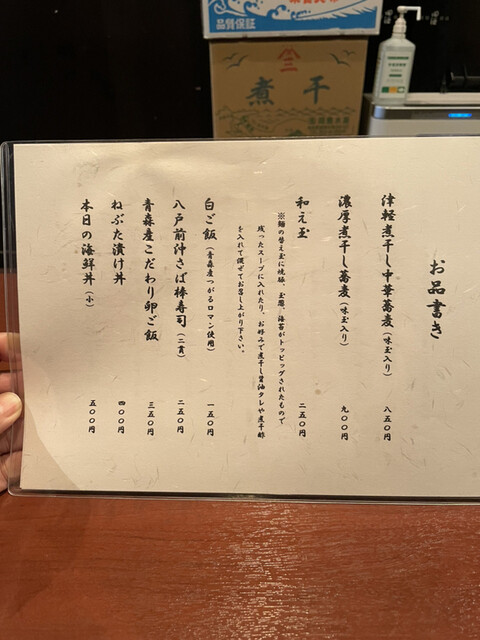 品質保証
煮干
お品書き
津軽煮干し中華蕎麦(味玉入り) 八五〇円
濃厚煮干し蕎麦(味玉入り) 九〇〇円
和え玉 二五〇円
※麺の替え玉に焼豚、玉葱、海苔がトッピングされたもので
残ったスープに入れたり、お好みで煮干し醤油タレや煮干酢
を入れて混ぜてお召し上がり下さい。
白ご飯(青森産つがるロマン使用) 一五〇円
八戸前沖さば棒寿司(二貫) 二五〇円
青森産こだわり卵ご飯 三五〇円
ねぶた漬け丼 四〇〇円
本日の海鮮丼(小) 五〇〇円